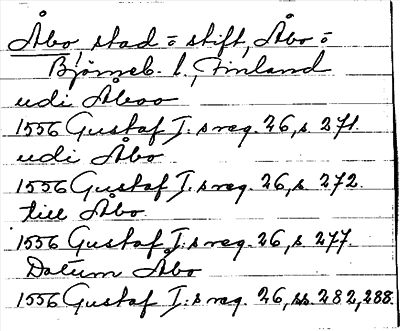 Åbo, stad = stift, Åbo =
Björneb. l., Finland
udi Åboo
1556 Gustaf I:s reg. 26, s. 271.
udi Åbo
1556 Gustaf I:s reg. 26, s. 272.
till Åbo
1556 Gustaf I:s reg. 26, s. 277.
Datum Åbo
1556 Gustaf I:s reg. 26, ss. 282, 288.